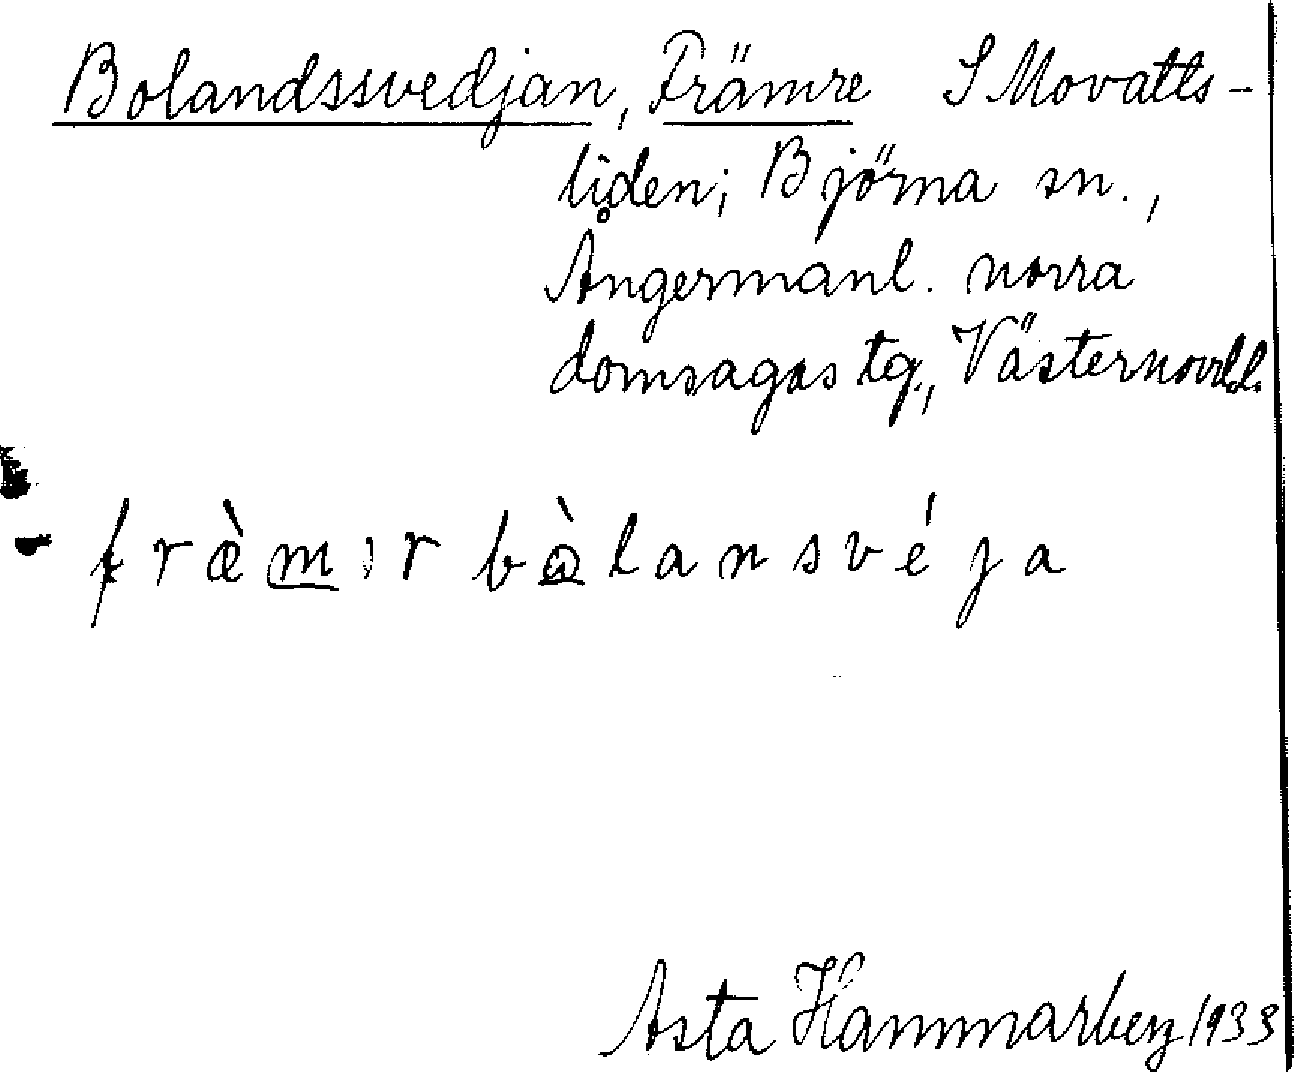 Bolandssvedjan, Främre S Movatts-
liden; Björna sn.,
Ångermanl. norra
domsagas tg., Västernorrl.l.
fræ̀mır bòlansvéja
Asta Hammarberg 1933